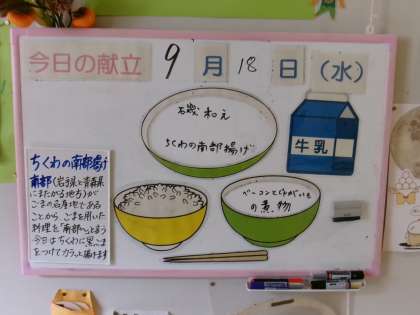 今日の献立 9月18日(水)
磯和え
ちくわの南部揚げ
牛乳
ベーコンとじゃがいも
の煮物
ちくわの南部揚げ
南部(岩手県と青森県
にまたがる地方)が
ごまの名産地である
ことから、ごまを用いた
料理を"南部〜"と言う
今日はちくわに黒ごま
をつけてカラッと揚げます